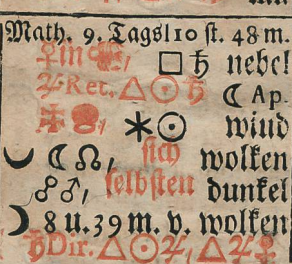 Math. 9. Tagsl10 st. 48 m.
♀in □ ♄ nebel
♃Ret. △☉♄ ☾ Ap.
✶☉ wind
☾ ☊, sich wolken
☍♂, selbsten dunkel
☽ 8 u. 39 m. v. wolken
♄Dir. △☉♃, △♃♀